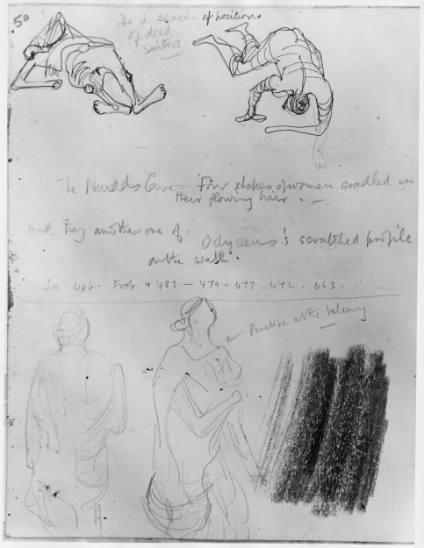 50
Do a series of positions
of dead
sailors
The Naiads Cave - Four shapes of women cradled in
their flowing hair. -
and try another one of Odysseus's scratched profile
on the wall.
See 466. 489 - 479 - 477. 472. 463.
← Penelope at the balcony